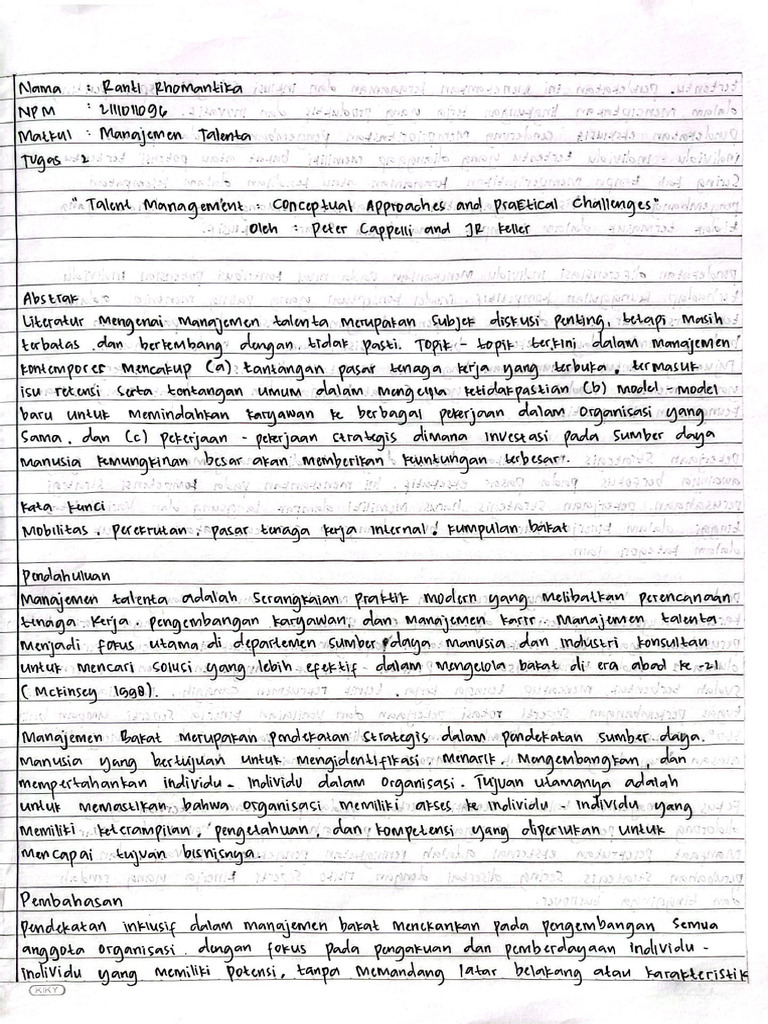 Nama : Ranti Rhomantika
NPM : 2111011096
Matkul : Manajemen Talenta
Tugas 2
"Talent Management : Conceptual Approaches and Practical Challenges"
Oleh : Peter Cappelli and JR Keller
Abstrak
Literatur Mengenai manajemen talenta merupakan subjek diskusi penting, tetapi masih
terbatas dan berkembang dengan tidak pasti. Topik - topik terkini dalam manajemen
kontemporer mencakup (a) tantangan pasar tenaga kerja yang terbuka, termasuk
isu retensi serta tontangan umum dalam mengelola ketidakpastian (b) model - model
baru untuk memindahkan karyawan ke berbagai pekerjaan dalam organisasi yang
sama. dan (c) pekerjaan - pekerjaan strategis dimana investasi pada sumber daya
manusia kemungkinan besar akan memberikan keuntungan terbesar.
Kata kunci
Mobilitas, perekrutan, pasar tenaga kerja internal, kumpulan bakat
Pendahuluan
Manajemen talenta adalah serangkaian praktik modern yang melibatkan perencanaan
tenaga kerja, pengembangan karyawan, dan manajemen karir. Manajemen talenta
menjadi fokus utama di departemen sumber daya manusia dan industri konsultan
untuk mencari solusi yang lebih efektif dalam mengelola bakat di era abad ke -21
(McKinsey 1998).
Manajemen Bakat merupakan pendekatan strategis dalam pendekatan sumber daya.
manusia yang bertujuan untuk mengidentifikasi, menarik, mengembangkan, dan
mempertahankan individu - individu dalam organisasi. Tujuan utamanya adalah
untuk memastikan bahwa organisasi memiliki akses ke individu - individu yang
memiliki keterampilan, pengetahuan, dan kompetensi yang diperlukan untuk
mencapai tujuan bisnisnya.
Pembahasan
Pendekatan inklusif dalam manajemen bakat menekankan pada pengembangan semua
anggota organisasi. dengan fokus pada pengakuan dan pemberdayaan individu -
individu yang memiliki potensi, tanpa memandang latar belakang atau karakteristik
KIKY